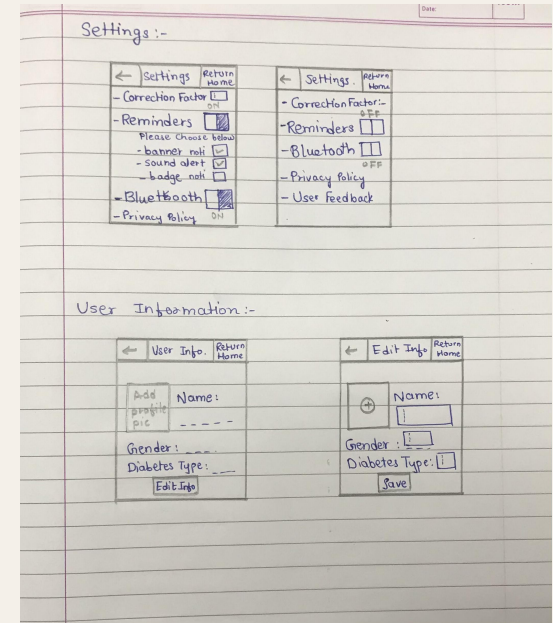 Date:
Settings :-
← Settings Return Home
- Correction Factor
ON
- Reminders
Please choose below
- banner noti
- sound alert
- badge noti
- Bluetooth
- Privacy Policy ON
← Settings. Return Home
- Correction Factor:-
OFF
- Reminders
- Bluetooth
OFF
- Privacy Policy
- User Feedback
User Information:-
← User Info. Return Home
Add profile pic
Name:
Gender:
Diabetes Type:
Edit Info
← Edit Info Return Home
+
Name:
Gender :
Diabetes Type:
Save